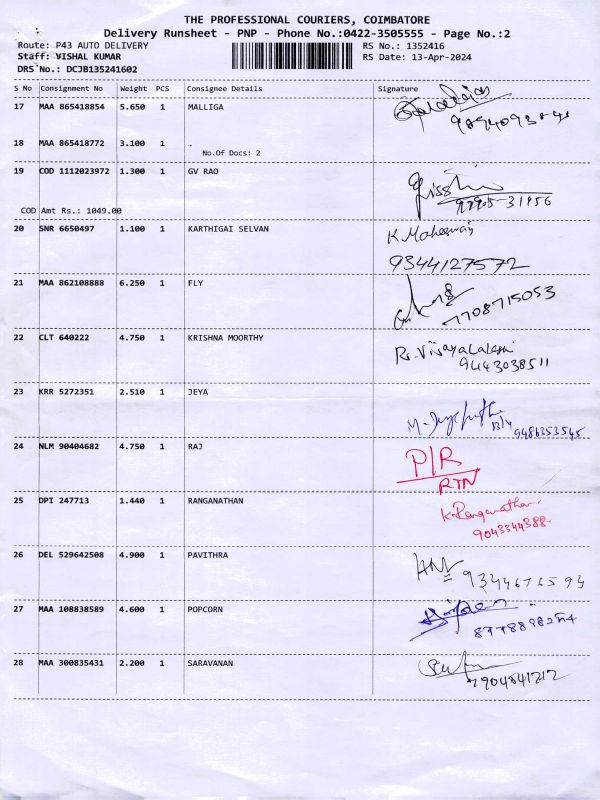 THE PROFESSIONAL COURIERS, COIMBATORE
Delivery Runsheet - PNP - Phone No.:0422-3505555 - Page No.:2
Route: P43 AUTO DELIVERY RS No.: 1352416
Staff: VISHAL KUMAR RS Date: 13-Apr-2024
DRS No.: DCJB135241602
S No Consignment No Weight PCS Consignee Details Signature
17 MAA 865418854 5.650 1 MALLIGA
18 MAA 865418772 3.100 1 .
No.Of Docs: 2
19 COD 1112023972 1.300 1 GV RAO
99905-31956
COD Amt Rs.: 1049.00
20 SNR 6650497 1.100 1 KARTHIGAI SELVAN
9344127572
21 MAA 862108888 6.250 1 FLY
7708715053
22 CLT 640222 4.750 1 KRISHNA MOORTHY
9443038511
23 KRR 5272351 2.510 1 JEYA
24 NLM 90404682 4.750 1 RAJ P/R
RTN
25 DPI 247713 1.440 1 RANGANATHAN K.Ranganathan
9043344388
26 DEL 529642508 4.900 1 PAVITHRA
27 MAA 108838589 4.600 1 POPCORN
28 MAA 300835431 2.200 1 SARAVANAN